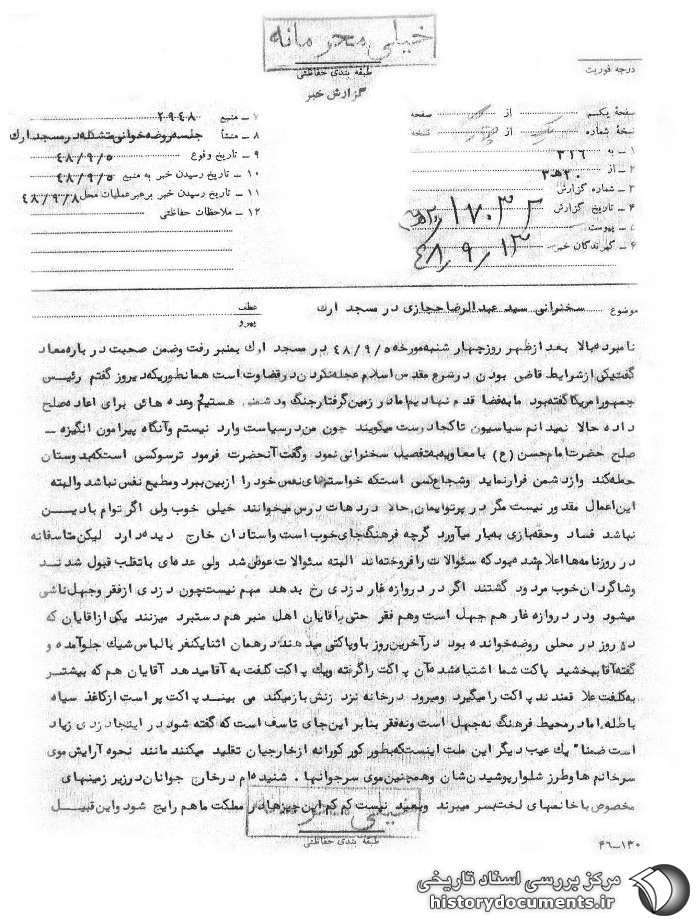 خیلی محرمانه
طبقه بندی حفاظتی
گزارش خبر
درجه فوریت
صفحهٔ یکم از صفحه
نسخهٔ شماره از نسخه
۱ ـ به ۳۱۶
۲ ـ از ۲۰ ه‍ ۳
۳ ـ شماره گزارش
۴ ـ تاریخ گزارش ۱۷۰۳۲
پیوست
۶ ـ گیرندگان خبر ۴۸/۹/۱۳
۷ ـ منبع ۲۹۴۸
۸ ـ منشأ جلسه روضه خوانی متشکله در مسجد ارك
۹ ـ تاریخ وقوع ۴۸/۹/۵
۱۰ ـ تاریخ رسیدن خبر به منبع ۴۸/۹/۵
۱۱ ـ تاریخ رسیدن خبر برهبر عملیات محل ۴۸/۹/۸
۱۲ ـ ملاحظات حفاظتی
موضوع سخنرانی سید عبدالرضا حجازی در مسجد ارك
عطف
پیرو
نامبرده بالا بعد از ظهر روز چهار شنبه مورخه ۴۸/۹/۵ در مسجد ارك بمنبر رفت وضمن صحبت در باره معاد
گفت یکی از شرایط قاضی بودن در شرع مقدس اسلام عجله نکردن در قضاوت است همانطوریکه دیروز گفتم رئیس
جمهور امریکا گفته بود ما به فضا قدم نهادیم اما در زمین گرفتار جنگ و دشمنی هستیم و وعده هائی برای اعاده صلح
داده حالا نمیدانم سیاسیون تا کجا درست میگویند چون من در سیاست وارد نیستم وآنگاه پیرامون انگیزه ـ
صلح حضرت امام حسن (ع) با معاویه به تفصیل سخنرانی نمود وگفت آنحضرت فرمود ترسو کسی است که بدوستان
حمله کند واز دشمن فرار نماید وشجاع کسی است که خواستهای نفس خود را از بین ببرد ومطیع نفس نباشد والبته
این اعمال مقدور نیست مگر در پرتو ایمان حالا در دهات درس میخوانند خیلی خوب ولی اگر توام با دیـن
نباشد فساد وحقه بازی به بار میآورد گرچه فرهنگ جای خوب است واستادان خارج دیده دارد لیکن متاسفانه
در روزنامه ها اعلام شده بود که سئوالات را فروخته اند البته سئوالات عوض شد ولی عده ای با تقلب قبول شدنـد
وشاگردان خوب مردود گشتند اگر در دروازه غار دزدی رخ بدهد مهم نیست چون دزدی از فقر وجهل ناشی
میشود ودر دروازه غار هم جهل است وهم فقر حتی بآقایان اهل منبر هم دستبرد میزنند یکی از اقایان که
ده روز در محلی روضه خوانده بود در آخرین روز باو پاکتی میدهند در همان اثنا یکنفر با لباس شیك جلو آمده و
گفته آقا ببخشید پاکت شما اشتباه شده آن پاکت را گرفته ویك پاکت کلفت به آقا میدهد آقایان هم که بیشتــر
به کلفت علاقمندند پاکت را میگیرد ومیرود در خانه نزد زنش باز میکند می بینـد پاکت پر است از کاغذ سیاه
باطله.اما در محیط فرهنگ نه جهل است ونه فقر بنابراین جای تاسف است که گفته شود در اینجا دزدی زیاد
است ضمناً یك عیب دیگر این ملت اینست که بطور کورکورانه از خارجیان تقلید میکنند مانند نحوه آرایش موی
سر خانم ها وطرز شلوار پوشیدن شان وهمچنین موی سر جوانها ، شنیده ام در خارج جوانان در زیر زمینهای
مخصوص با خانمهای لخت بسر میبرند وبعید نیست کم کم این چیزها در مملکت ما هم رایج شود واین قبیــل
خیلی محرمانه
طبقه بندی حفاظتی
۴۶ـ۱۳۰
مرکز بررسی اسناد تاریخی
historydocuments.ir